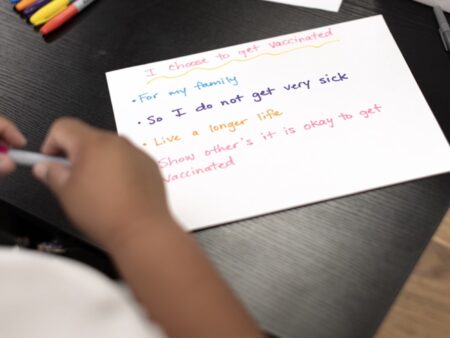 I choose to get vaccinated
• For my family
• So I do not get very sick
• Live a longer life
Show other's it is okay to get
vaccinated